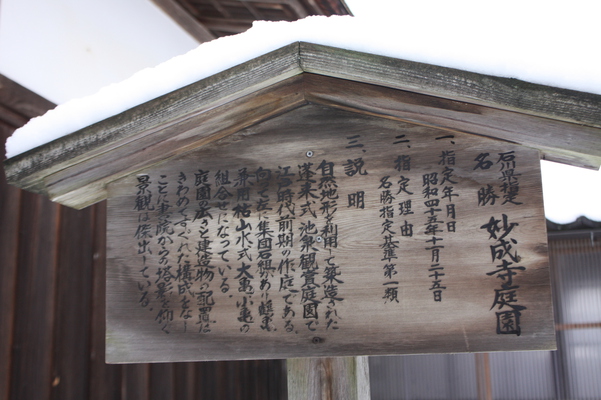 石川県指定
名勝 妙成寺庭園
一、指定年月日
昭和四十三年十月二十五日
二、指定理由
名勝指定基準第一類
三、説明
自然地形を利用して築造された
蓬莱式池泉観賞庭園で
江戸時代前期の作庭である。
向って左に集団石組があり鶴亀
兼用枯山水式大亀小亀の
組合せになっている。
庭園の広さと建造物の配置は
きわめてすぐれた構成をなし
ことに書院からの塔影を仰ぐ
景観は傑出している。